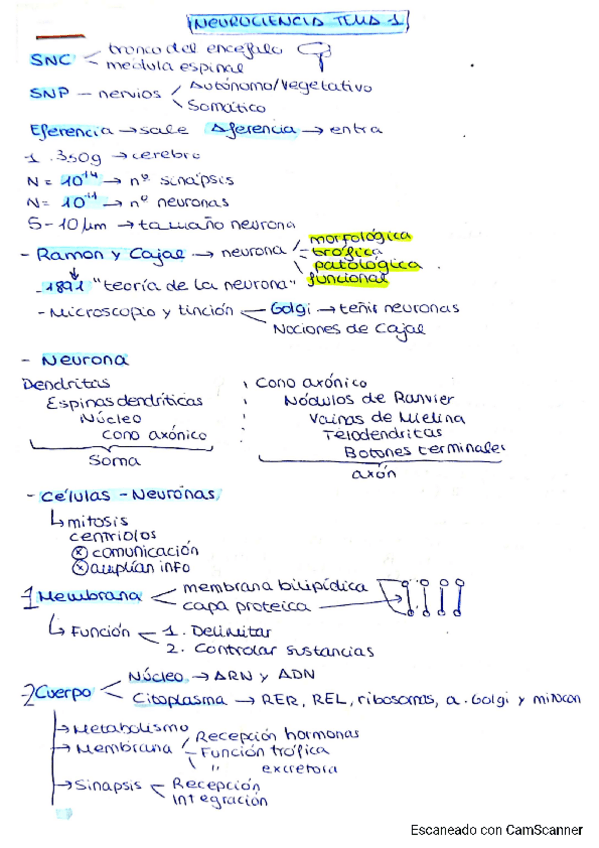 NEUROCIENCIA TEMA 1
SNC tronco del encéfalo
medula espinal
SNP — nervios Autónomo/Vegetativo
Somático
Eferencia → sale Aferencia → entra
1.350g → cerebro
N = 10¹⁴ → nº sinapsis
N = 10¹¹ → nº neuronas
5-10 µm → tamaño neurona
- Ramon y Cajal → neurona morfológica
trófica
patológica
funcional
- 1891 "teoría de la neurona"
- Microscopio y tinción Golgi → teñir neuronas
Nociones de Cajal
- Neurona
Dendritas
Espinas dendríticas
Núcleo
cono axónico
Soma
Cono axónico
Nódulos de Ranvier
Vainas de Mielina
Telodendritas
Botones terminales
axón
- Células - Neuronas
↳ mitosis
centriolos
ⓧ comunicación
ⓧ amplían info
1 Membrana membrana bilipídica
capa proteica
↳ Función 1. Delimitar
2. Controlar sustancias
2 Cuerpo Núcleo → ARN y ADN
Citoplasma → RER, REL, ribosomas, a. Golgi y mitocon
→ Metabolismo
→ Membrana Recepción hormonas
Función trófica
" excretora
→ Sinapsis Recepción
Integración
Escaneado con CamScanner